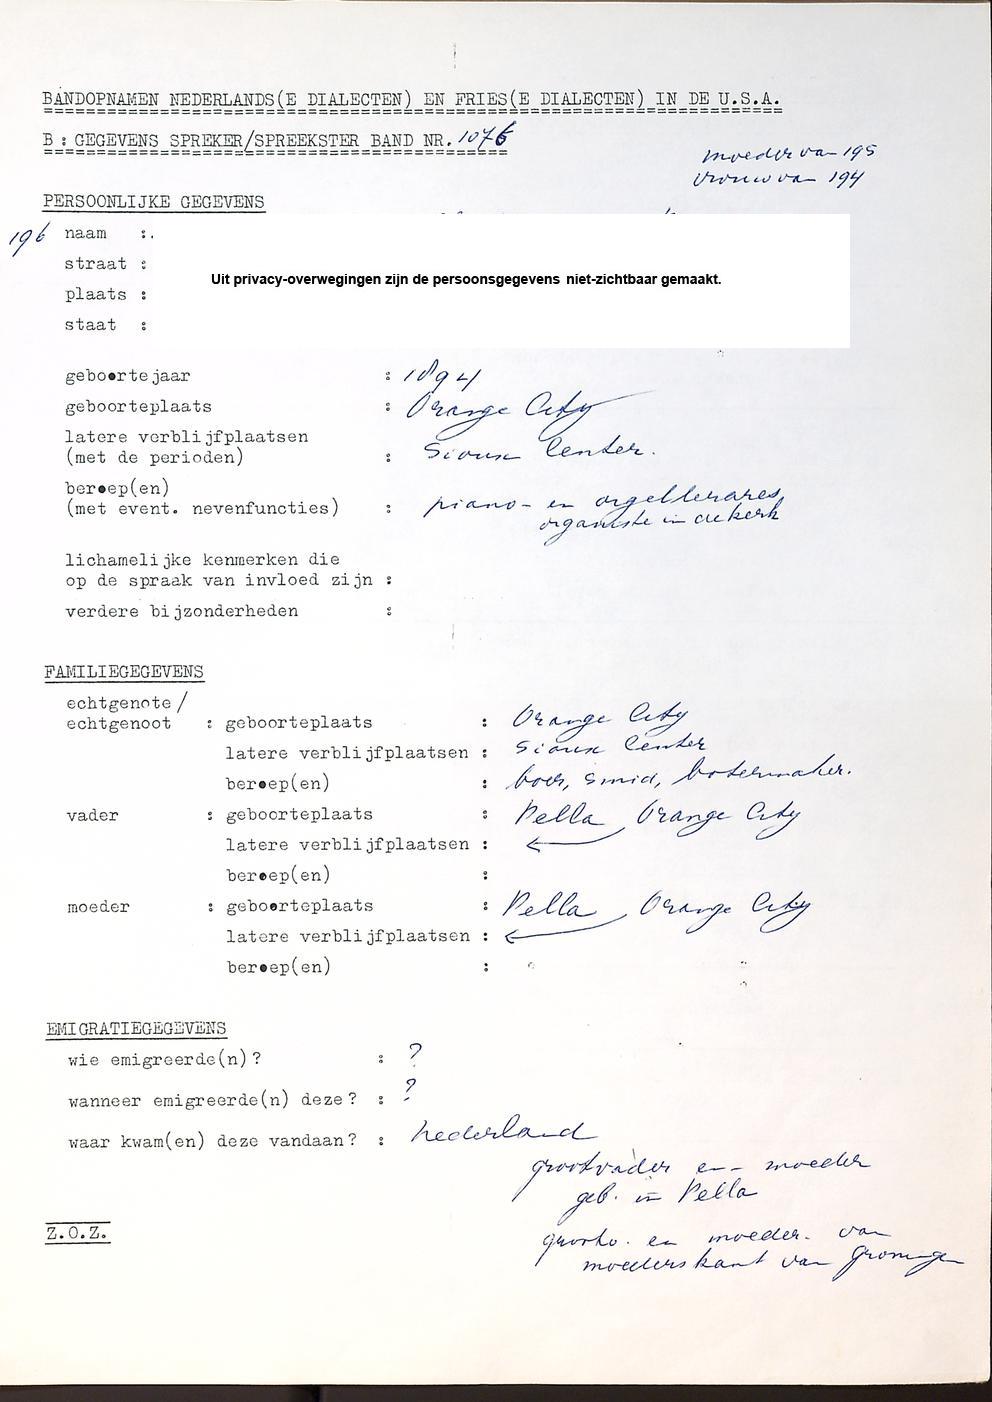 BANDOPNAMEN NEDERLANDS(E DIALECTEN) EN FRIES(E DIALECTEN) IN DE U.S.A.
B: GEGEVENS SPREKER/SPREEKSTER BAND NR. 1076
moeder van 195
vrouw van 194
PERSOONLIJKE GEGEVENS
196 naam :.
straat :
Uit privacy-overwegingen zijn de persoonsgegevens niet-zichtbaar gemaakt.
plaats :
staat :
geboortejaar : 1894
geboorteplaats : Orange City
latere verblijfplaatsen
(met de perioden) : Sioux Center.
beroep(en)
(met event. nevenfuncties) : piano- en orgellerares,
organiste in de kerk
lichamelijke kenmerken die
op de spraak van invloed zijn :
verdere bijzonderheden :
FAMILIEGEGEVENS
echtgenote/
echtgenoot : geboorteplaats : Orange City
latere verblijfplaatsen : Sioux Center
beroep(en) : boer, smid, botermaker.
vader : geboorteplaats : Pella Orange City
latere verblijfplaatsen : ←
beroep(en) :
moeder : geboorteplaats : Pella, Orange City
latere verblijfplaatsen : ←
beroep(en) :
EMIGRATIEGEGEVENS
wie emigreerde(n)? : ?
wanneer emigreerde(n) deze? : ?
waar kwam(en) deze vandaan? : Nederland
grootvader en - moeder
geb. in Pella
Z.O.Z.
grootv. en moeder. van
moederskant van Groningen